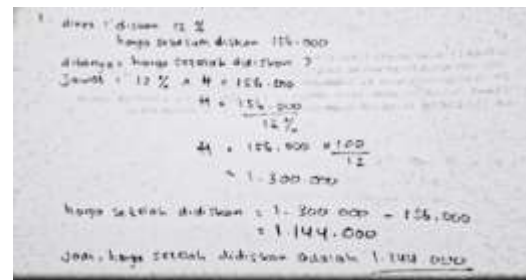 1. diket : diskon 12 %
harga sebelum diskon 156.000
ditanya : harga setelah didiskon ?
Jawab : 12 % x H = 156.000
H = 156.000
12 %
H = 156.000 x 100
12
= 1.300.000
harga setelah didiskon = 1.300.000 - 156.000
= 1.144.000
Jadi, harga setelah didiskon adalah 1.144.000